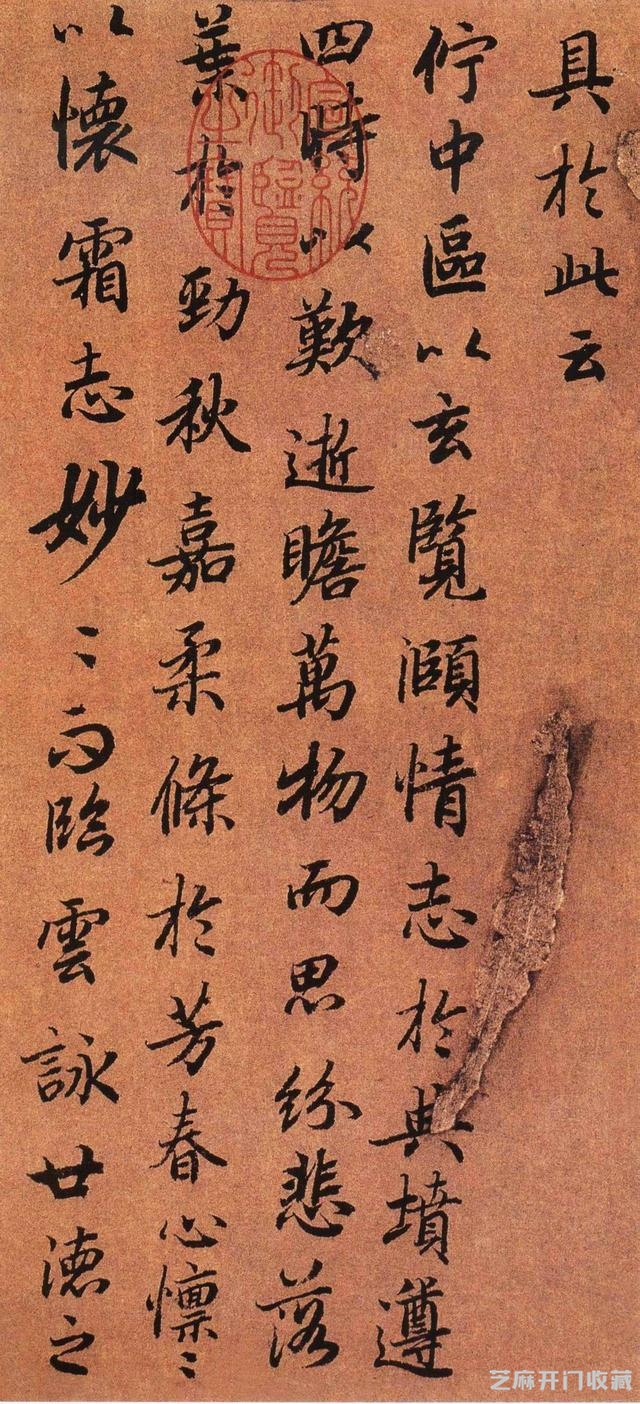 具於此云
佇中區以玄覽頤情志於典墳遵
四時以歎逝瞻萬物而思紛悲落
葉於勁秋嘉柔條於芳春心懍〻
以懷霜志妙〻而臨雲詠世德之
宣統御覽之寶
芝麻开门收藏